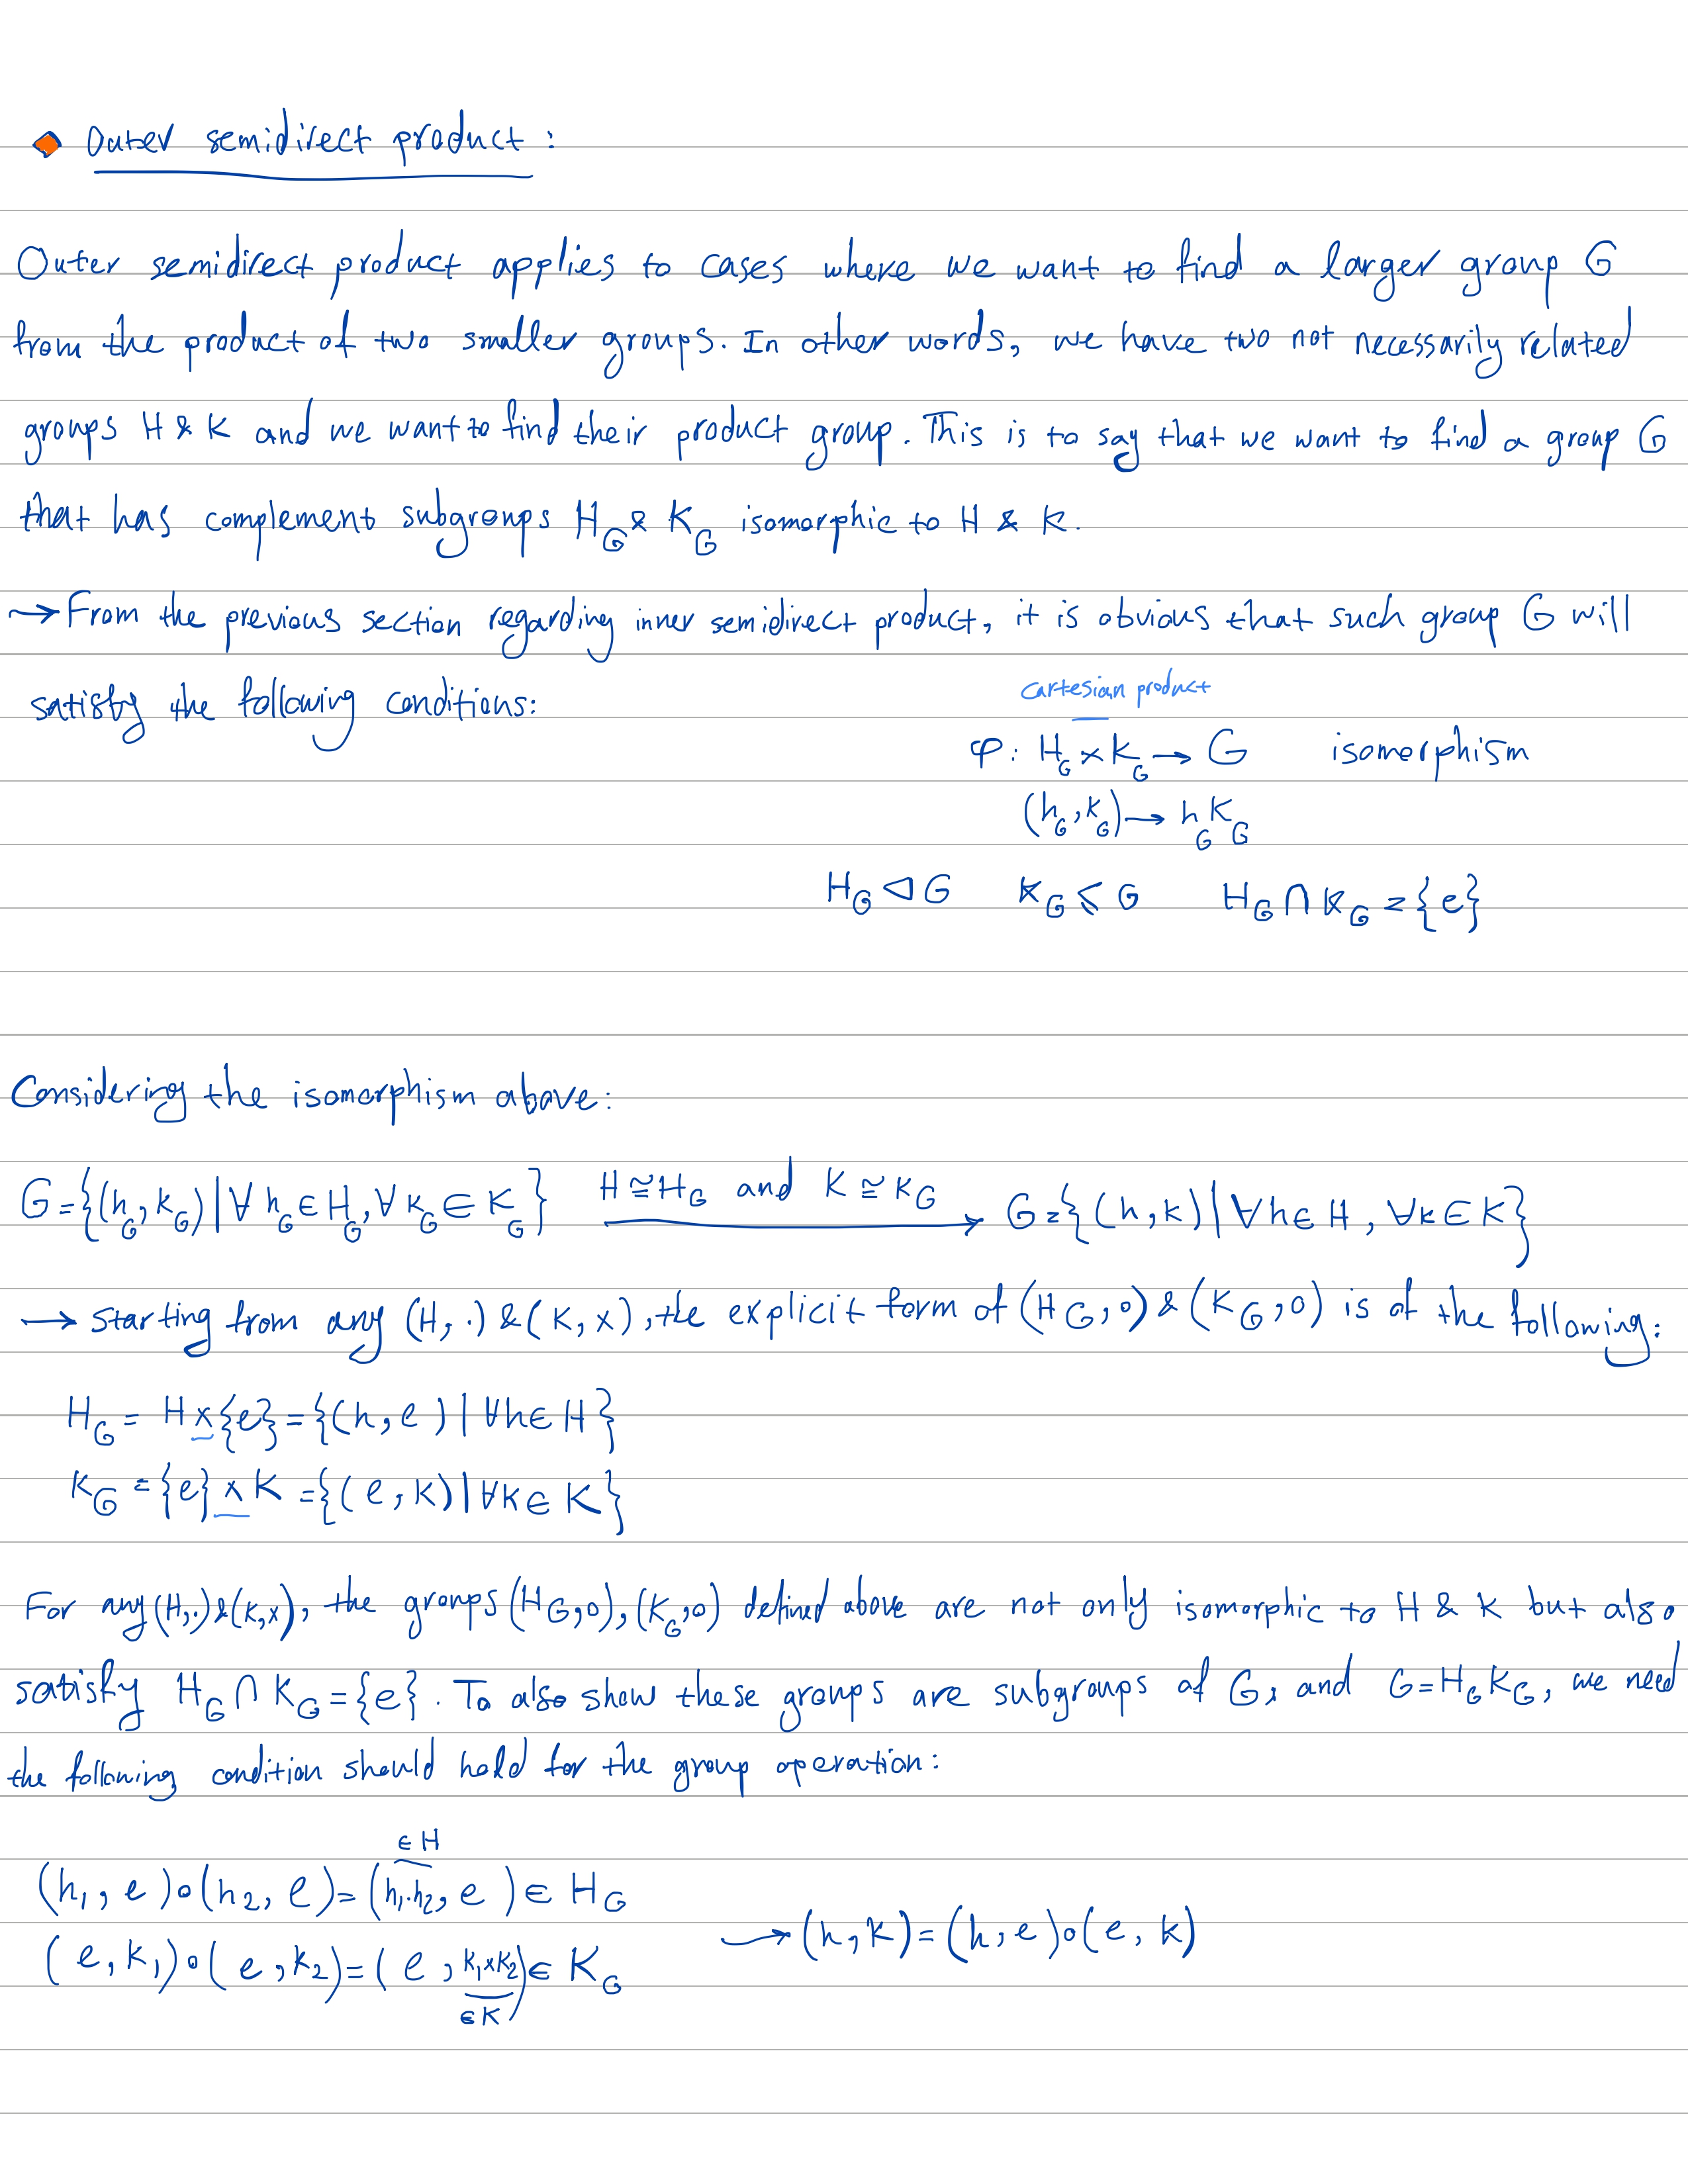 Outer semidirect product :
Outer semidirect product applies to cases where we want to find a larger group G
from the product of two smaller groups. In other words, we have two not necessarily related
groups H & K and we want to find their product group. This is to say that we want to find a group G
that has complement subgroups H_G & K_G isomorphic to H & K.
→ From the previous section regarding inner semidirect product, it is obvious that such group G will
satisfy the following conditions:
Cartesian product
φ: H_G × K_G → G isomorphism
(h_G, k_G) → h_G k_G
H_G ◁ G K_G ⩽ G H_G ∩ K_G = {e}
Considering the isomorphism above:
G = {(h_G, k_G) | ∀ h_G ∈ H_G, ∀ k_G ∈ K_G} H ≅ H_G and K ≅ K_G → G = {(h, k) | ∀h ∈ H, ∀k ∈ K}
→ Starting from any (H, ·) & (K, ×), the explicit form of (H_G, ∘) & (K_G, ∘) is of the following:
H_G = H × {e} = {(h, e) | ∀h ∈ H}
K_G = {e} × K = {(e, k) | ∀k ∈ K}
For any (H, ·) & (K, ×), the groups (H_G, ∘), (K_G, ∘) defined above are not only isomorphic to H & K but also
satisfy H_G ∩ K_G = {e}. To also show these groups are subgroups of G, and G = H_G K_G, we need
the following condition should hold for the group operation:
∈ H
(h₁, e) ∘ (h₂, e) = (h₁·h₂, e) ∈ H_G
→ (h, k) = (h, e) ∘ (e, k)
(e, k₁) ∘ (e, k₂) = (e, k₁×k₂) ∈ K_G
∈ K